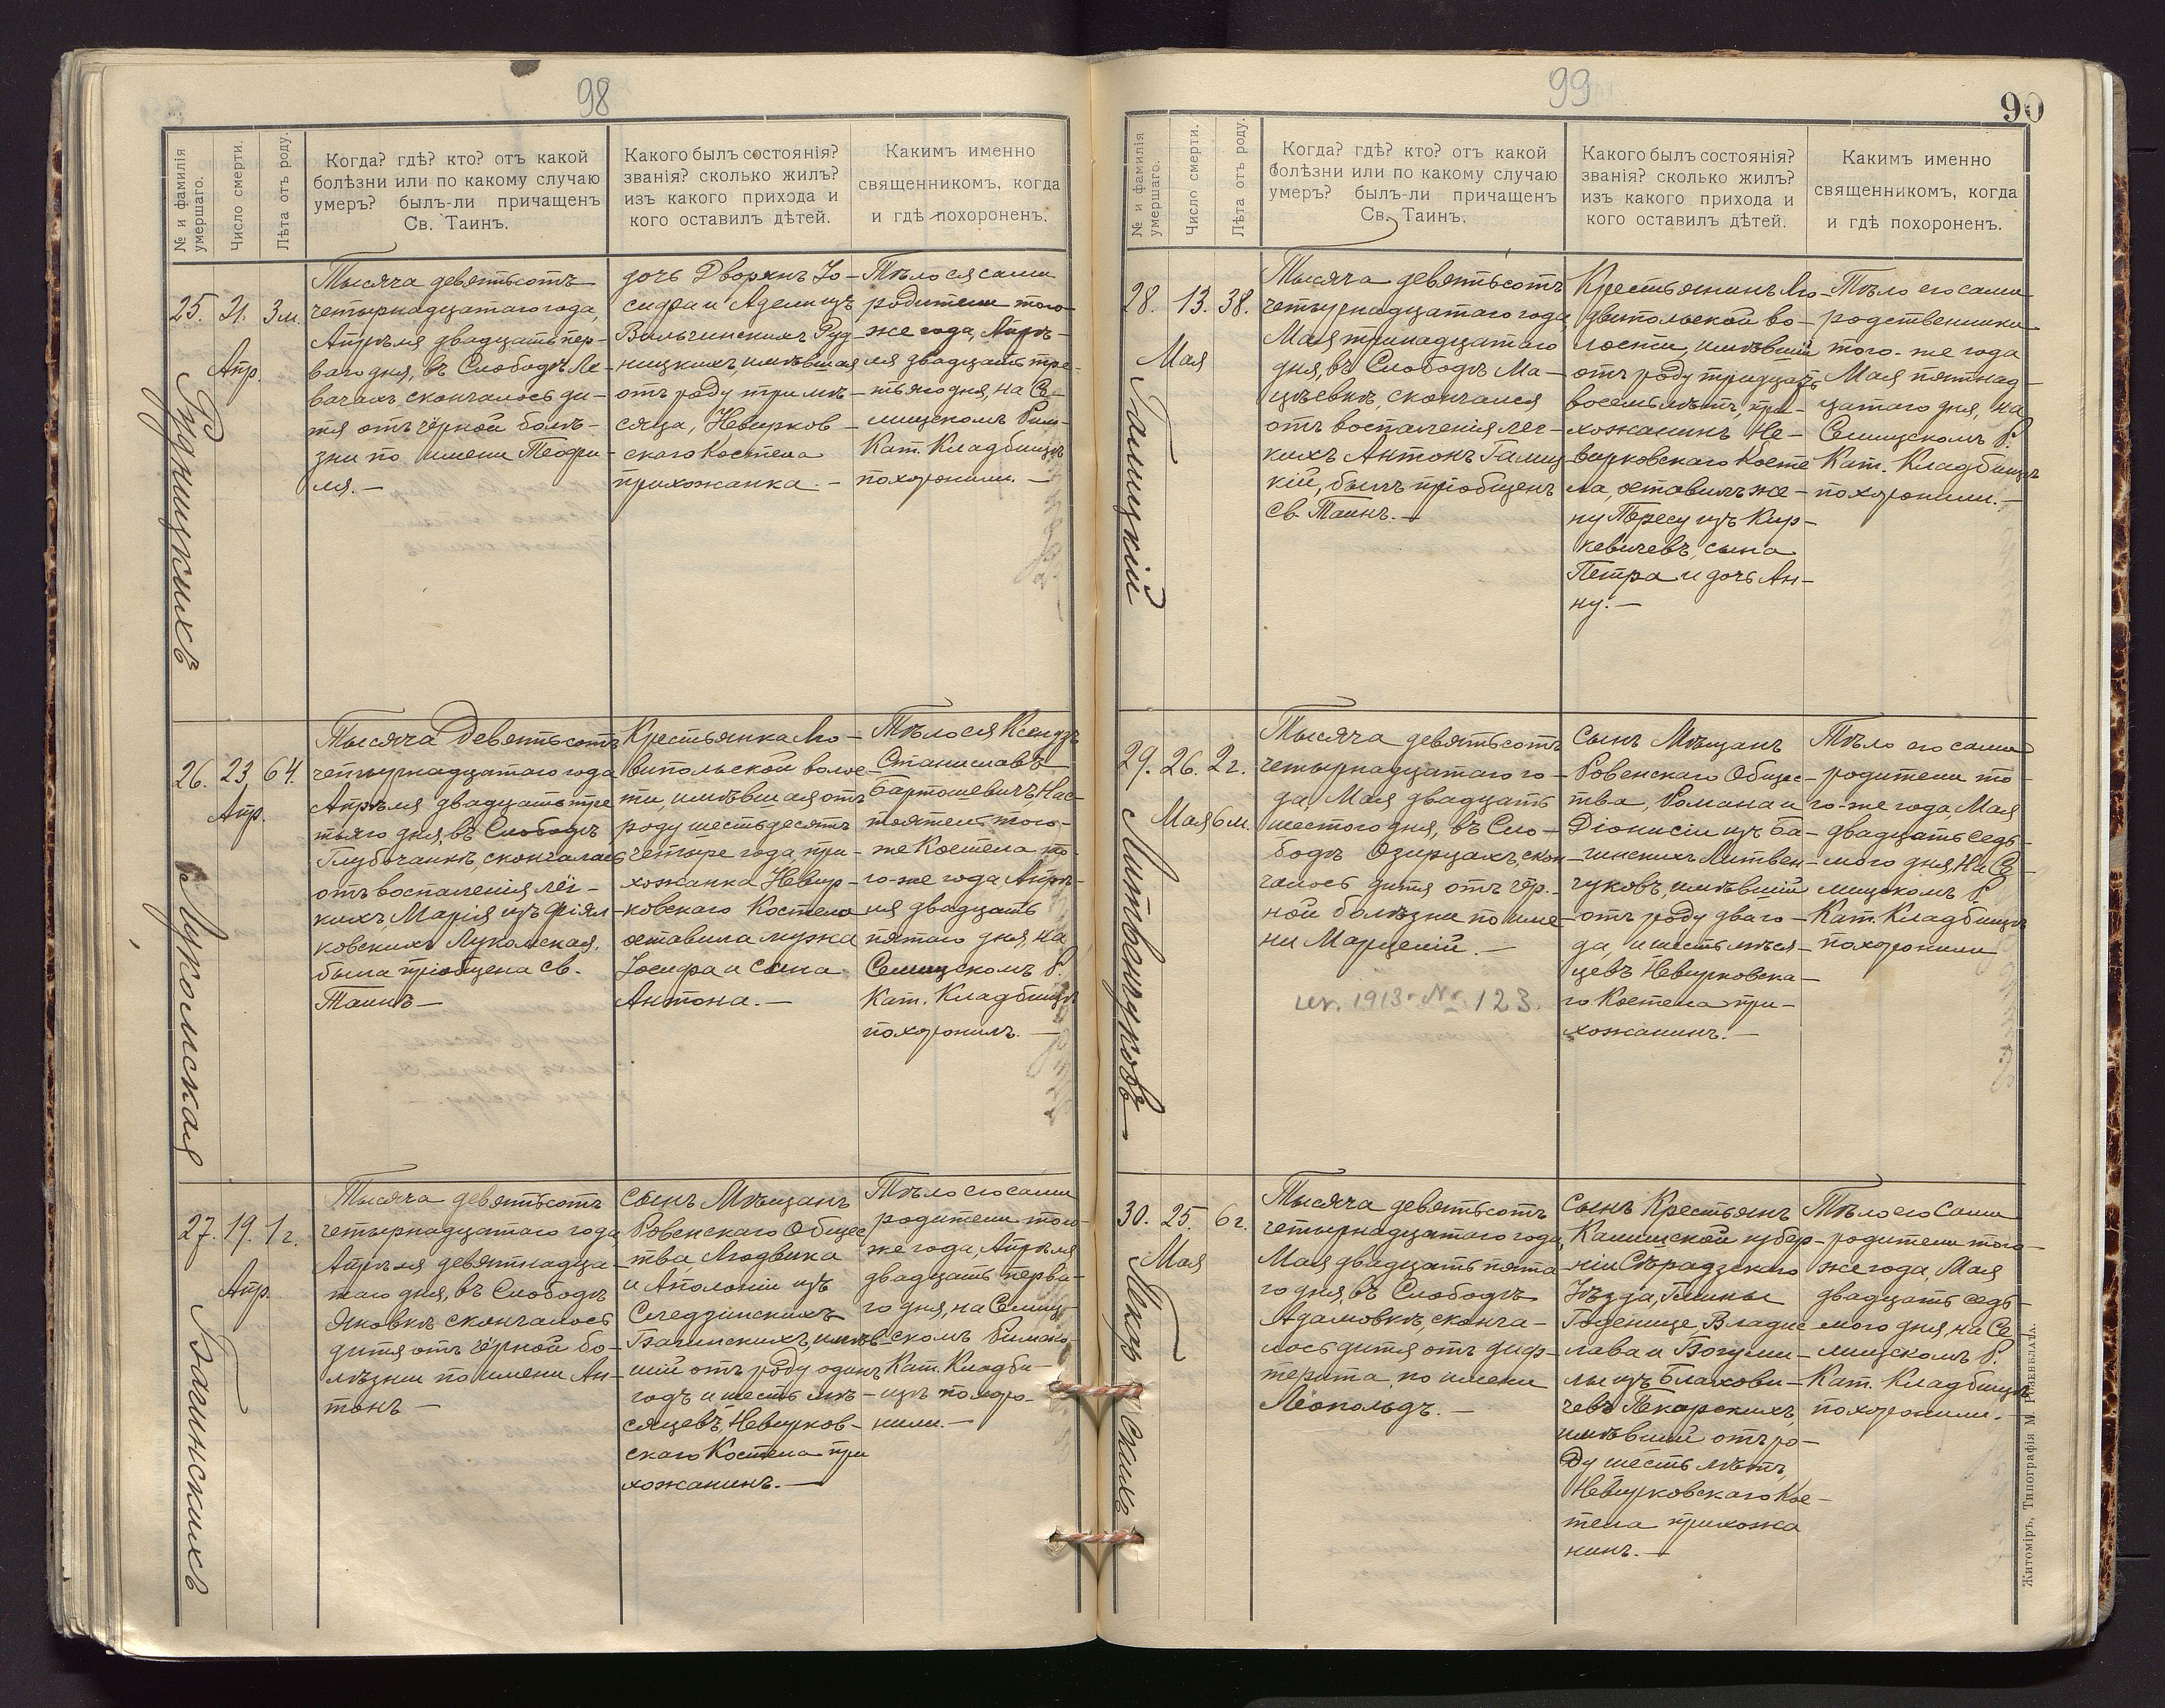 98
№ и фамилія умершаго.
Число смерти.
Лѣта отъ роду.
Когда? гдѣ? кто? отъ какой
болѣзни или по какому случаю
умеръ? былъ-ли причащенъ
Св. Таинъ.
Какого былъ состоянія?
званія? сколько жилъ?
изъ какого прихода и
кого оставилъ дѣтей.
Какимъ именно
священникомъ, когда
и гдѣ похороненъ.
25.
21.
Апр.
3 м.
Рудницкихъ
Тысяча девятьсотъ
четырнадцатаго года,
Апрѣля двадцать пер-
ваго дня, въ Слободѣ Ле-
вачахъ скончалось ди-
тя отъ чёрной болѣ-
зни по имени Теофи-
ля.-
дочь Дворянъ Іо-
сифа и Адели изъ
Вильчинскихъ Руд-
ницкихъ, имѣвшая
отъ роду три мѣ-
сяца, Невирков-
скаго Костела
прихожанка.-
Тѣло ея сами
родители того-
же года, Апрѣ-
ля двадцать тре-
тьяго дня, на Се-
лищскомъ Рим-
Кат. Кладбищѣ
похоронили.-
26.
23
Апр.
64.
Лукомская
Тысяча девятьсотъ
четырнадцатаго года
Апрѣля двадцать тре
тьяго дня, въ Слободѣ
Глубочанкѣ, скончалась
отъ воспаленія лёг-
кихъ, Марія изъ Фіял-
ковскихъ Лукомская,
была пріобщена Св.
Таинъ-
Крестьянка Лю-
випольской волос-
ти, имѣвшая отъ
роду шестьдесятъ
четыре года, при-
хожанка Невир-
ковскаго Костела
оставила мужа
Іосифа и сына
Антона.-
Тѣло ея Ксендзъ
Станиславъ
Бартошевичъ, Нас-
тоятель того-
же Костела то-
го-же года Апрѣ-
ля двадцать
пятаго дня, на
Селищскомъ Р.
Кат. Кладбищѣ
похоронилъ.-
27.
19.
Апр.
1 г.
Багинскихъ
Тысяча девятьсотъ
четырнадцатаго года,
Апрѣля девятнадца-
таго дня, въ Слободѣ
Яновкѣ скончалось
дитя отъ чёрной бо-
лѣзни по имени Ан-
тонъ-
сынъ Мѣщанъ
Ровенскаго Общес
тва, Людвика
и Аполоніи изъ
Следзинскихъ
Багинскихъ, имѣв-
шій отъ роду одинъ
годъ и шесть мѣ-
сяцевъ, Невирков-
скаго Костела при
хожанинъ.-
Тѣло его сами
родители того-
же года, Апрѣля
двадцать перва-
го дня, на Селищ-
скомъ Римско
Кат. Кладби-
щѣ похоро-
нили.-
99
90
№ и фамилія умершаго.
Число смерти.
Лѣта отъ роду.
Когда? гдѣ? кто? отъ какой
болѣзни или по какому случаю
умеръ? былъ-ли причащенъ
Св. Таинъ.
Какого былъ состоянія?
званія? сколько жилъ?
изъ какого прихода и
кого оставилъ дѣтей.
Какимъ именно
священникомъ, когда
и гдѣ похороненъ.
28.
13.
Мая
38.
Галицкій
Тысяча девятьсотъ
четырнадцатаго года,
Мая тринадцатаго
дня, въ Слободѣ Ма-
цѣевкѣ, скончался
отъ воспаленія лег-
кихъ Антонъ Галиц
кій, былъ пріобщенъ
Св. Таинъ.-
Крестьянинъ Лю-
двипольской во-
лости, имѣвшій
отъ роду тридцать
восемь лѣтъ, при-
хожанинъ Не-
вирковскаго Косте
ла, оставилъ же-
ну Терезу изъ Кир-
кевичевъ, сына
Петра и дочь Ан-
ну.-
Тѣло его сами
родственники
того-же года
Мая пятнад-
цатаго дня, на
Селищскомъ Р.
Кат. Кладбищѣ
похоронили.-
29.
26.
Мая
2 г.
6 м.
Литвенчуковъ
Тысяча девятьсотъ
четырнадцатаго го-
да, Мая двадцать
шестого дня, въ Сло-
бодѣ Озирцахъ, скон
чалось дитя отъ чёр-
ной болѣзни по име
ни Марцелій.-
ur. 1913 r. Nr. 123.
сынъ Мѣщанъ
Ровенскаго Общес-
тва, Романа и
Діонисіи изъ Ба-
гинскихъ Литвен-
чуковъ, имѣвшій
отъ роду два го-
да, и шесть мѣся-
цевъ Невирковска-
го Костела при-
хожанинъ.-
Тѣло его сами
родители то-
го-же года, Мая
двадцать седь-
мого дня, на Се
лищскомъ Р.
Кат. Кладбищѣ
похоронили
30.
25.
Мая
6 г.
Пекарскихъ
Тысяча девятьсотъ
четырнадцатаго года,
Мая двадцать пята-
го дня, въ Слободѣ
Адамовкѣ, сконча-
лось дитя отъ диф-
терита, по имени
Леопольдъ.-
сынъ Крестьянъ
Калишской губер-
ніи Сѣрадзскаго
Уѣзда, Гмины
Годенице, Владис
лава и Богуми-
лы изъ Блахови-
чевъ Пекарскихъ,
имѣвшій отъ ро-
ду шесть лѣтъ,
Невирковскаго Кос-
тела прихожа
нинъ.-
Тѣло его сами
родители того-
же года, Мая
двадцать седь-
мого дня, на Се
лищскомъ Р.
Кат. Кладбищѣ
похоронили.-
Житоміръ, Типографія М. Розенблатъ.